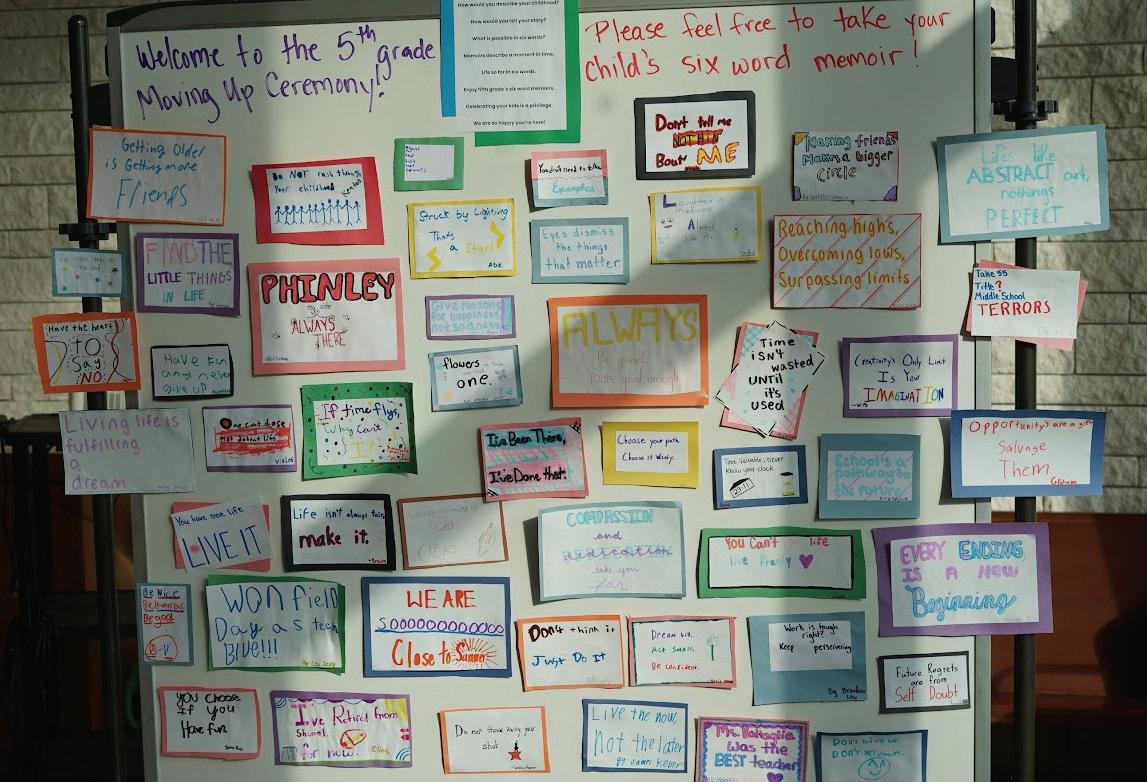 Welcome to the 5th grade
Moving Up Ceremony!
How would you describe your childhood?
How would you tell your story?
What is possible in six words?
Memoirs describe a moment in time.
Life so far in six words.
Enjoy fifth grade's six word memoirs.
Celebrating your kids is a privilege.
We are so happy you're here!
Please feel free to take your
child's six word memoir!
Getting Older
is Getting more
Friends
Do NOT rush through
Your childhood
Don't tell me
Bout ME
Making friends
Making a bigger
circle
Lifes like
ABSTRACT art,
nothings
PERFECT
You don't need to
Examples
Struck by Lighting
Thats
a Start
Abe
Eyes dismiss
the things
that matter
Laughter is
medicine
Always
use it.
Reaching highs,
Overcoming lows,
Surpassing limits
FIND THE
LITTLE THINGS
IN LIFE
PHINLEY
ALWAYS
THERE
Give reasons
for happiness
not sadness
ALWAYS
Be yourself
You're good enough
Take 55
Title?
Middle School
TERRORS
Have the heart
TO
Say
NO
Have fun
and never
give up
flowers
one.
Time
isn't
wasted
UNTIL
it's
used
Creativity's Only Limit
Is Your
IMAGINATION
Living life is
fulfilling
a
dream
One cant dose
not defeat life
Violet
If time flys,
Why Can't
I?
I've Been There,
I've Done that.
Choose your path
Choose it Wisely.
Time Valuable, never
Know your clock
School's a
pathway to
the future
Opportunity's are a gift
Salvage
Them.
You have one life
LIVE IT
Life isn't always fair,
make it.
CACAO
COMPASSION
and
dedication
take you
far
You Can't life
live freely
EVERY ENDING
IS A NEW
Beginning
Be Nice
Be Humorous
Be good
Won field
Day as team
Blue!!!
WE ARE
SOOOOOOOOOOOO
Close to Summer
Don't think it
Just Do It
Dream big.
Act Small.
Be confident.
Work is tough
right?
Keep persevering
By Brandon
Lew
Future Regrets
are from
Self Doubt
you choose
If you
Have fun
I've Retired from
School,
for now.
Do not throw away your
shot
Live the now,
Not the later
By: James Keller
Mr. Battaglia
was the
BEST teacher
Don't give up.
Don't let down.